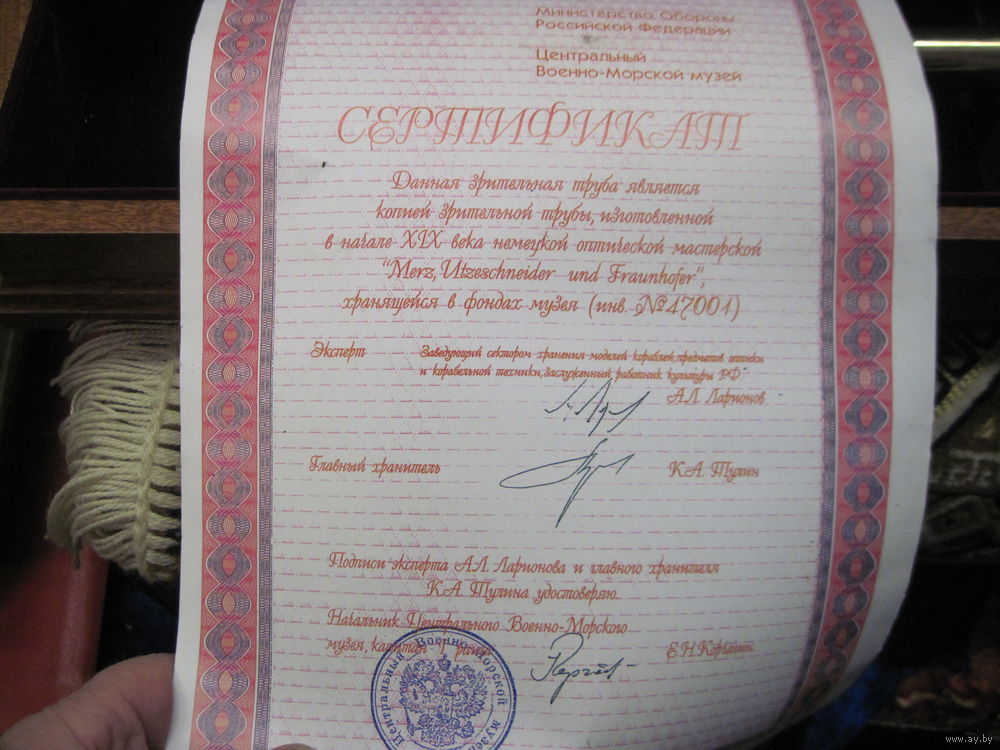 Министерство Обороны
Российской Федерации
Центральный
Военно-Морской музей
СЕРТИФИКАТ
Данная зрительная труба является
копией зрительной трубы, изготовленной
в начале XIX века немецкой оптической мастерской
“Merz, Utzeschneider und Fraunhofer”,
хранящейся в фондах музея (инв. №47001)
Эксперт Заведующий сектором хранения моделей кораблей, предметов оптики
и корабельной техники, Заслуженный работник культуры РФ
А.Л. Ларионов
Главный хранитель К.А. Тулин
Подписи эксперта А.Л. Ларионова и главного хранителя
К.А. Тулина удостоверяю.
Начальник Центрального Военно-Морского
музея, капитан 1 ранга Е.Н. Корчагин
Центральный Военно-Морской музей
www.ay.by